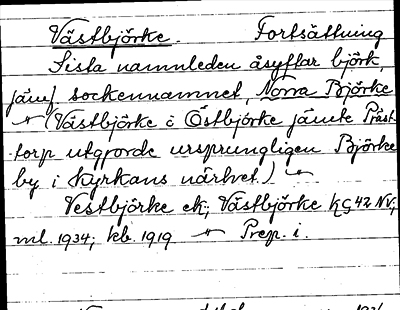 Västbjörke. Fortsättning
Sista namnleden åsyftar björk,
jämf. sockennamnet, Norra Björke
(Västbjörke o Östbjörke jämte Präst-
torp utgjorde ursprungligen Björke
by i kyrkans närhet.)
Vestbjörke ek; Västbjörke KG 42 NV;
ml. 1934; kb. 1919 Prep. i.